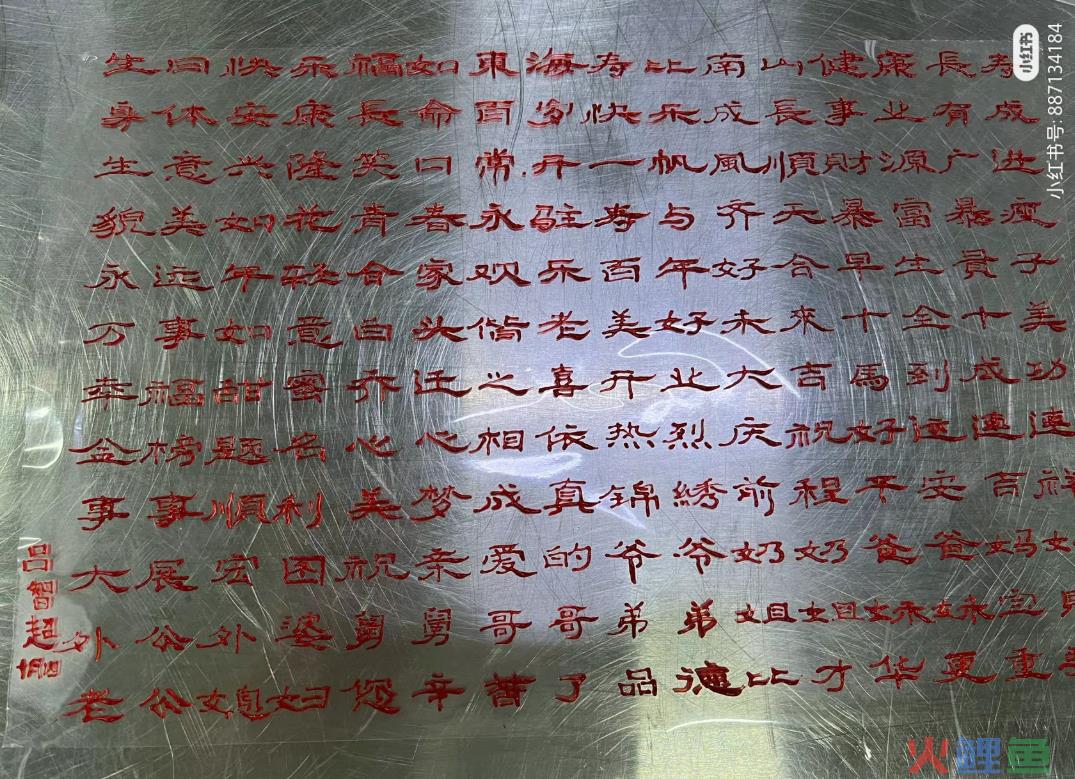 生日快乐福如東海寿比南山健康長寿
身体安康長命百岁快乐成長事业有成
生意兴隆笑口常开一帆風順財源广进
貌美如花青春永驻寿与齐天暴富暴瘦
永远年轻合家欢乐百年好合早生貴子
万事如意白头偕老美好未來十全十美
幸福甜蜜乔迁之喜开业大吉馬到成功
金榜题名心心相依热烈庆祝好运連連
事事順利美梦成真锦綉前程平安吉祥
大展宏图祝亲爱的爷爷奶奶爸爸妈
外公外婆舅舅哥哥弟弟姐姐妹妹宝
老公媳妇您辛苦了品德比才华更重
吕智超
小红书
小红书号: 887134184
火鲤鱼